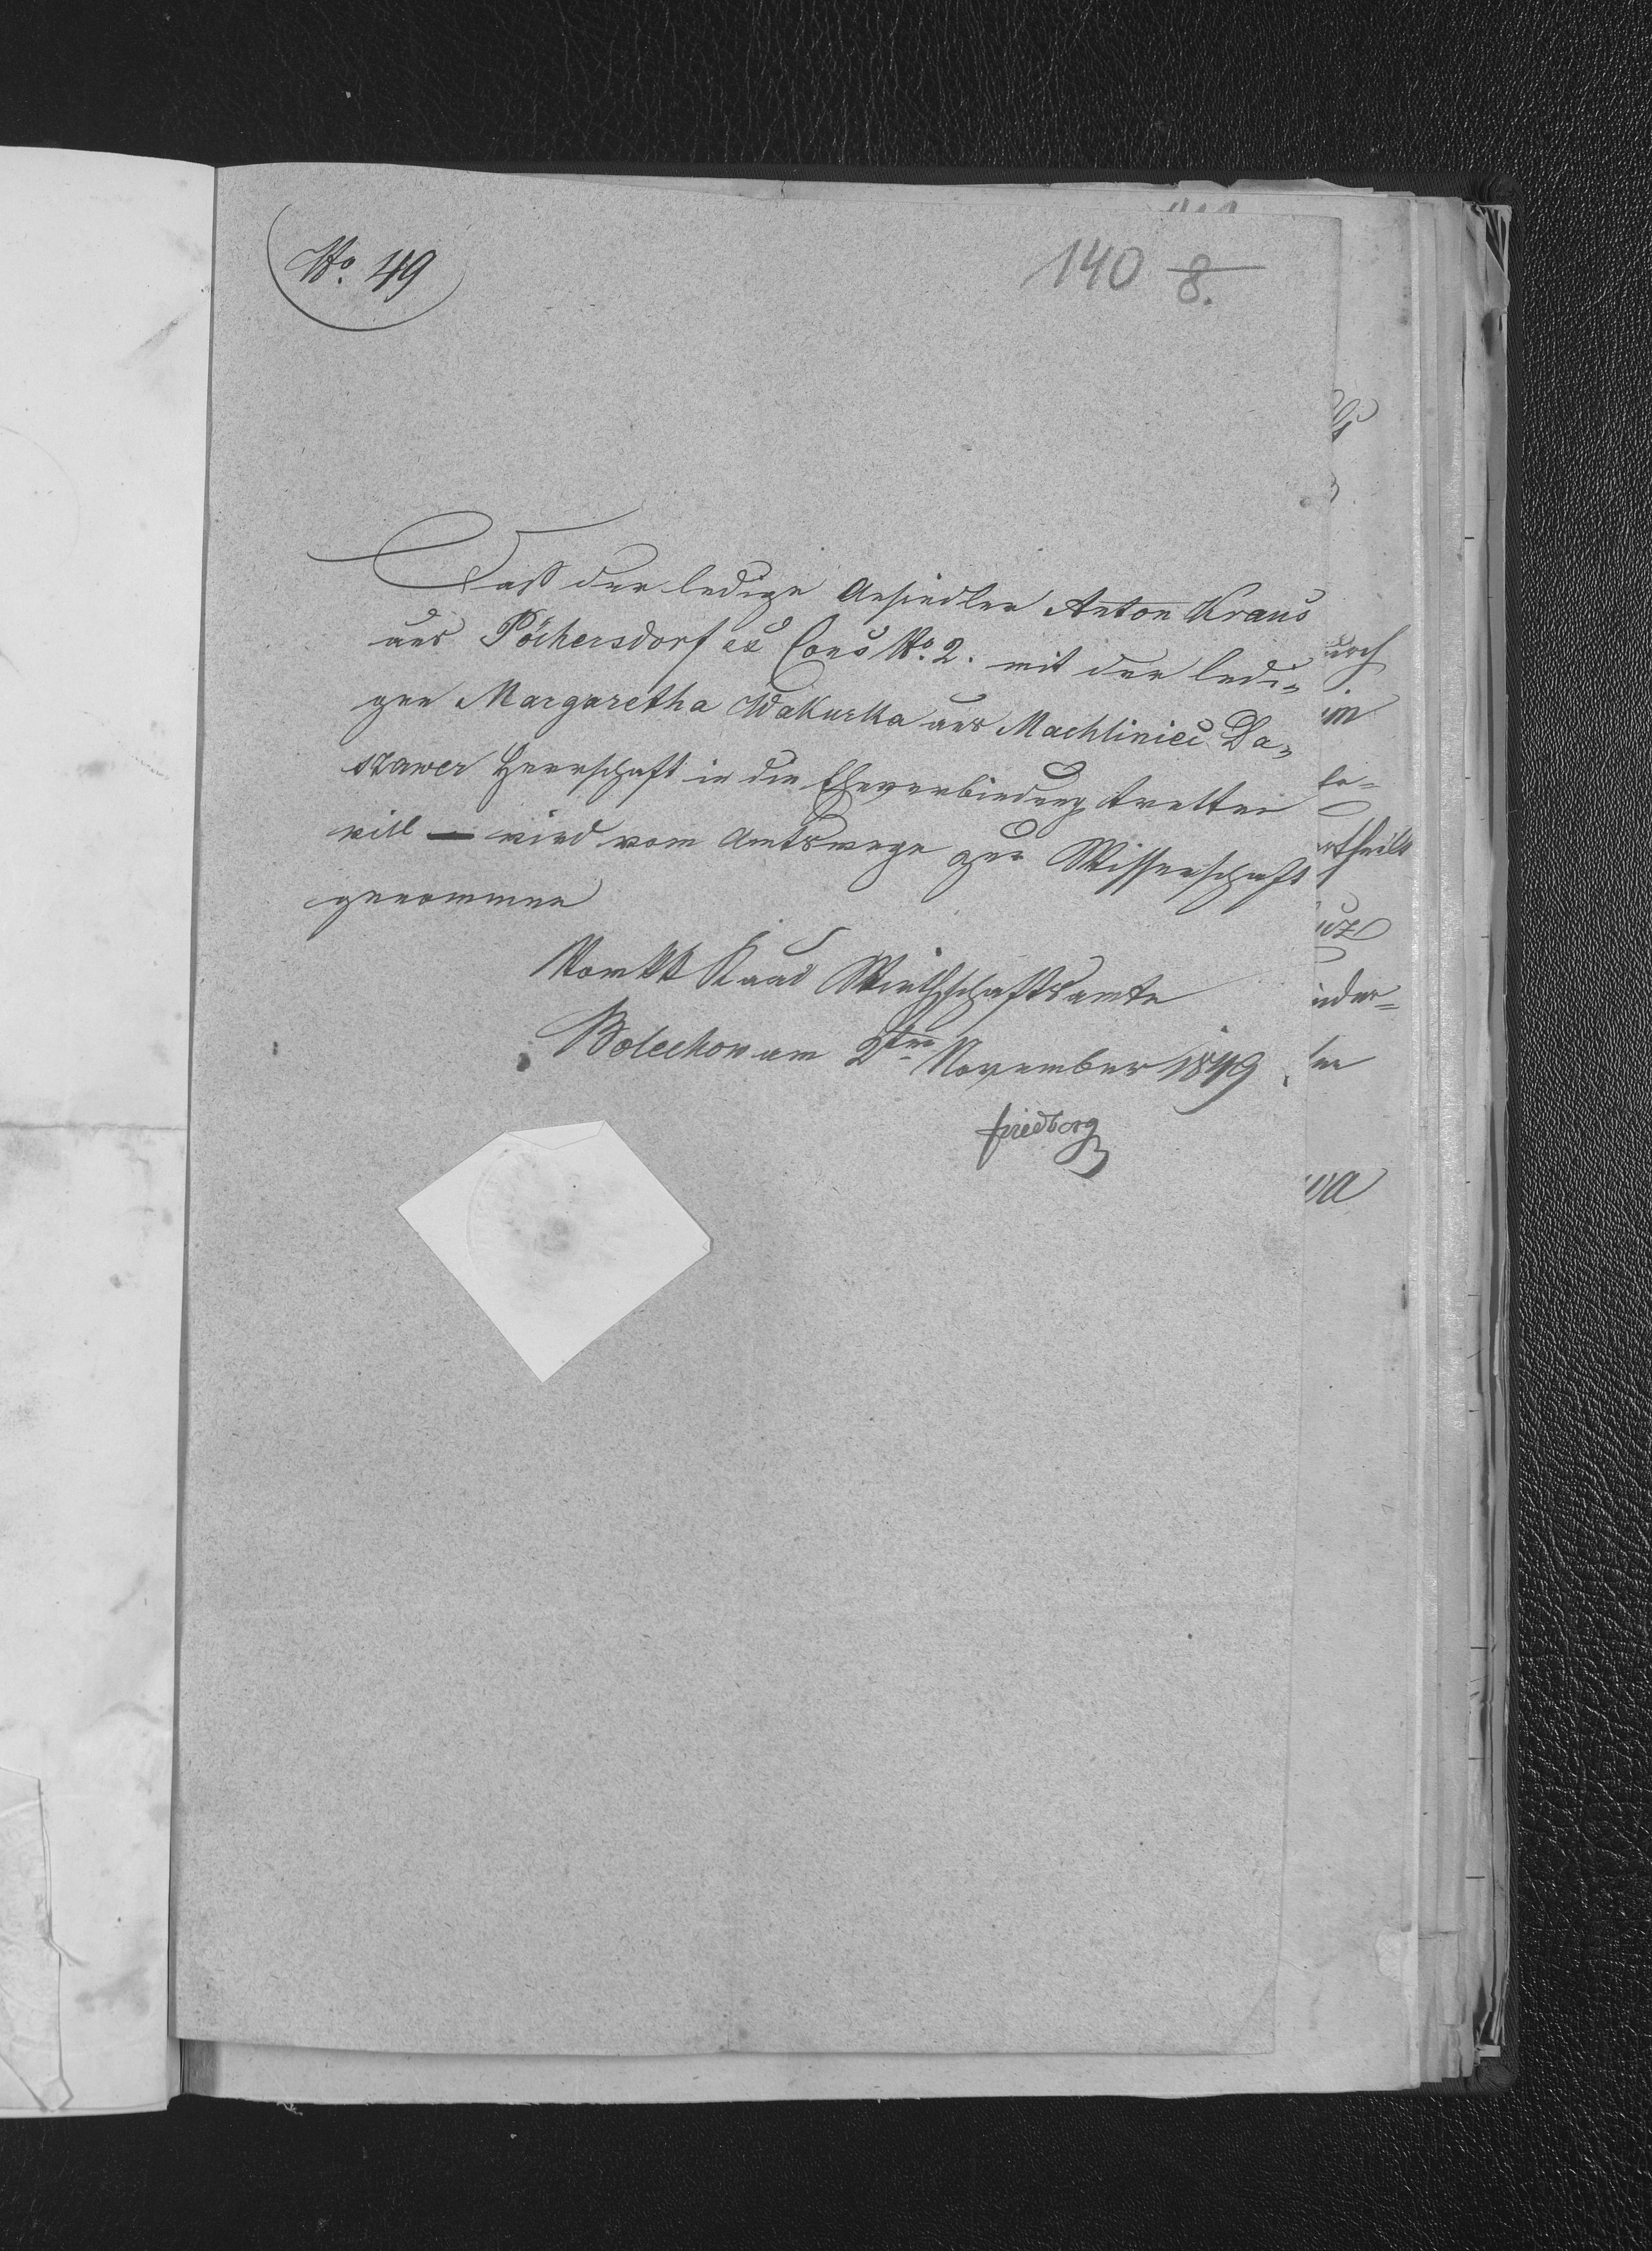 No. 49
140 8.
Daß der ledige Ansiedler Anton Kraus
aus Pöchersdorf ex Cons No. 2. mit der ledi=
gen Margaretha Wakurka aus Machliniec Da=
szawer Herrschaft in die Eheverbindung tretten
will — wird vom Amtswege zur Wissenschaft
genommen
Vom kk Kaal Wirthschaftsamte
Bolechow am 2ten November 1849.
Friedberg